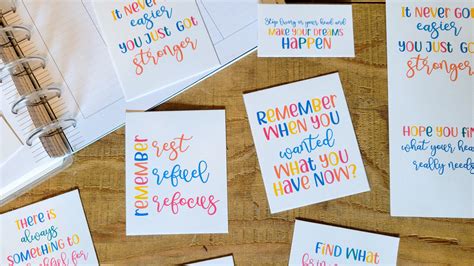 IT NEVER GOT
easier
YOU JUST GOT
stronger
Stop living in your head and
MAKE YOUR DREAMS
HAPPEN
IT NEVER GO
easier
YOU JUST GO
stronger
HOPE YOU FIN
what your hea
really needs
REMEMBER
rest
refuel
refocus
REMEMBER
WHEN YOU
wanted
WHAT YOU
HAVE NOW?
THERE IS
always
SOMETHING TO
FIND WHAT